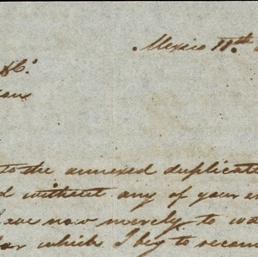 Mexico 11th
& Co.
to the annexed duplicate
without any of your
now merely to
which I beg to recom